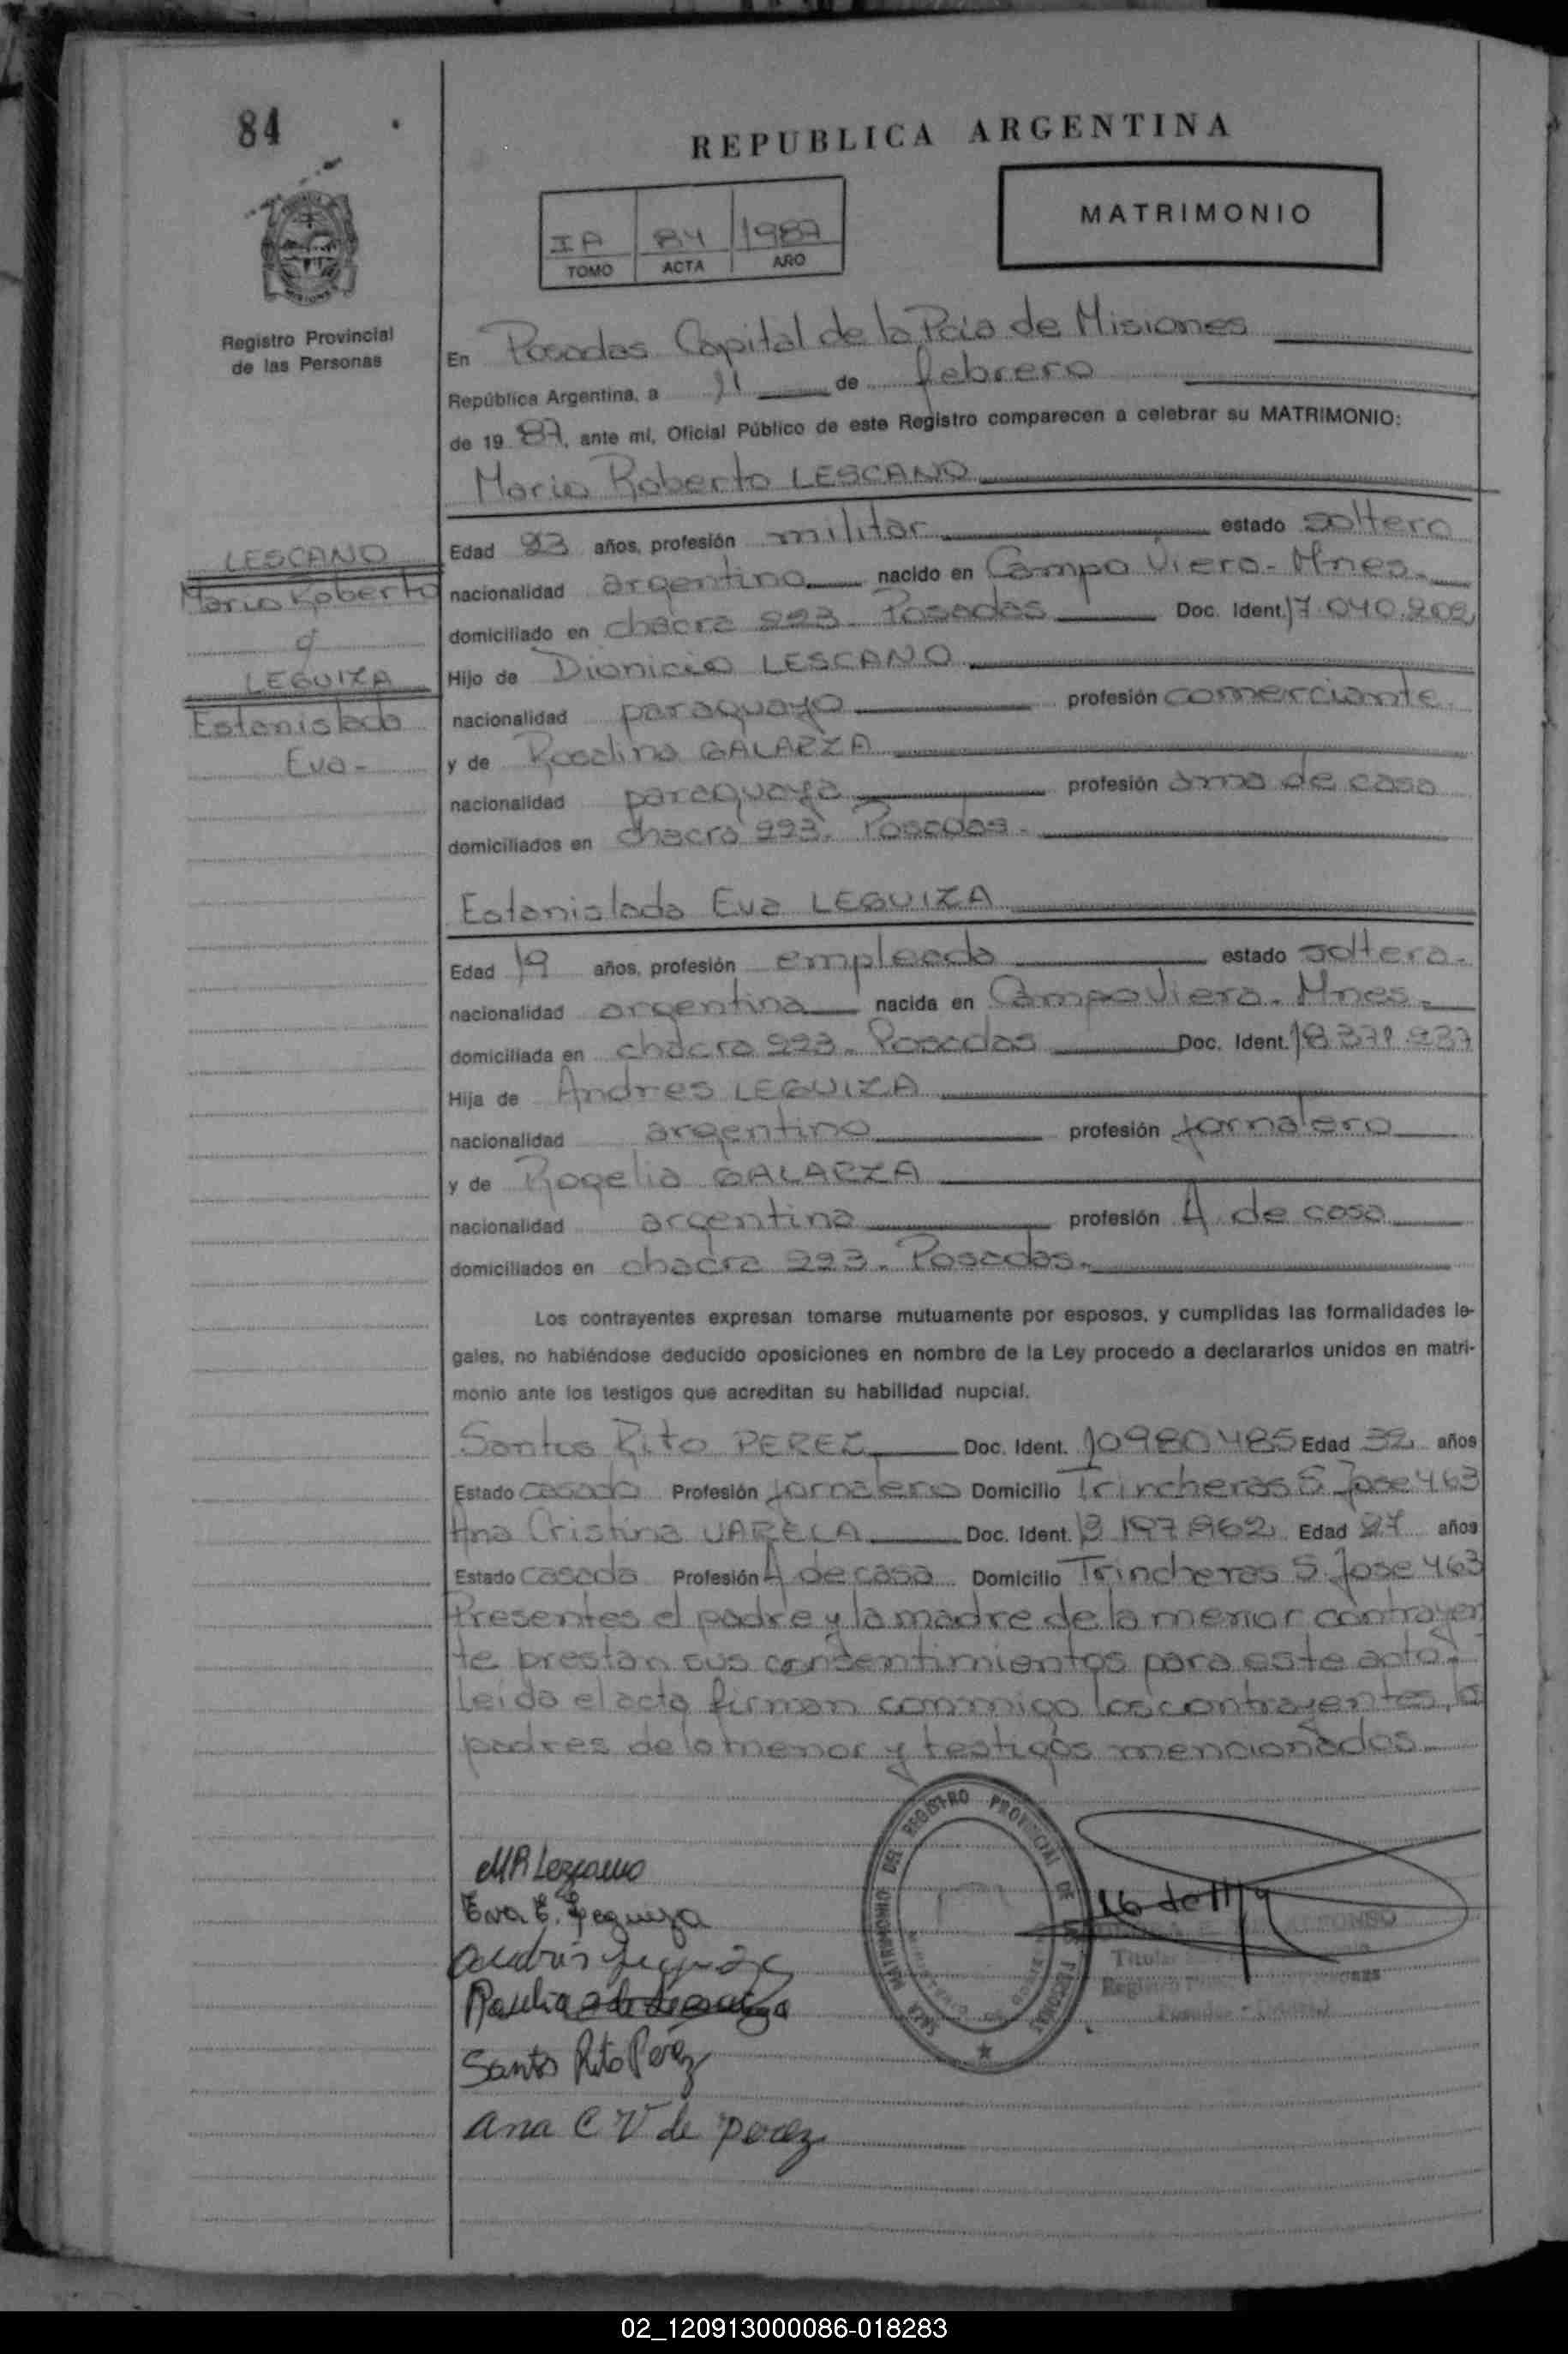 84
REPUBLICA ARGENTINA
MATRIMONIO
IA 84 1987
TOMO ACTA AÑO
Registro Provincial
de las Personas
En Posadas Capital de la Pcia de Misiones
República Argentina, a 11 de febrero
de 1987, ante mi, Oficial Público de este Registro comparecen a celebrar su MATRIMONIO:
Mario Roberto LESCANO
LESCANO
Mario Roberto
LEGUIZA
Estanislada
Eva-
Edad 23 años, profesión militar estado soltero
nacionalidad argentino nacido en Campo Viera- Mnes.
domiciliado en chacra 223. Posadas Doc. Ident. 17.040.202
Hijo de Dionicio LESCANO
nacionalidad paraguayo profesión comerciante
y de Rosalina GALARZA
nacionalidad paraguaya profesión ama de casa
domiciliados en chacra 223. Posadas.
Estanislada Eva LEGUIZA
Edad 19 años, profesión empleada estado soltera.
nacionalidad argentina nacida en Campo Viera. Mnes.
domiciliada en chacra 223. Posadas Doc. Ident.
Hija de Andres LEGUIZA
nacionalidad argentino profesión jornalero
y de Rogelia GALARZA
nacionalidad argentina profesión A de casa
domiciliados en chacra 223. Posadas.
Los contrayentes expresan tomarse mutuamente por esposos, y cumplidas las formalidades le-
gales, no habiéndose deducido oposiciones en nombre de la Ley procedo a declararlos unidos en matri-
monio ante los testigos que acreditan su habilidad nupcial.
Santos Rito PEREZ Doc. Ident. 10980485 Edad 32 años
Estado casado Profesión jornalero Domicilio Trincheras S. Jose 463
Ana Cristina VARELA Doc. Ident. Edad 27 años
Estado casada Profesión A de casa Domicilio Trincheras S. Jose 463
Presentes el padre y la madre de la menor contrayen
te prestan sus consentimientos para este acto.
Leida el acta firman conmigo los contrayentes, los
padres de la menor y testigos mencionados.
MR Lezcano
Eva E. Leguiza
Santos Rito Perez
Ana C V de perez
MATRIMONIO DEL REGISTRO PROVINCIAL DE PERSONAS
Titular
Registro
02_120913000086-018283